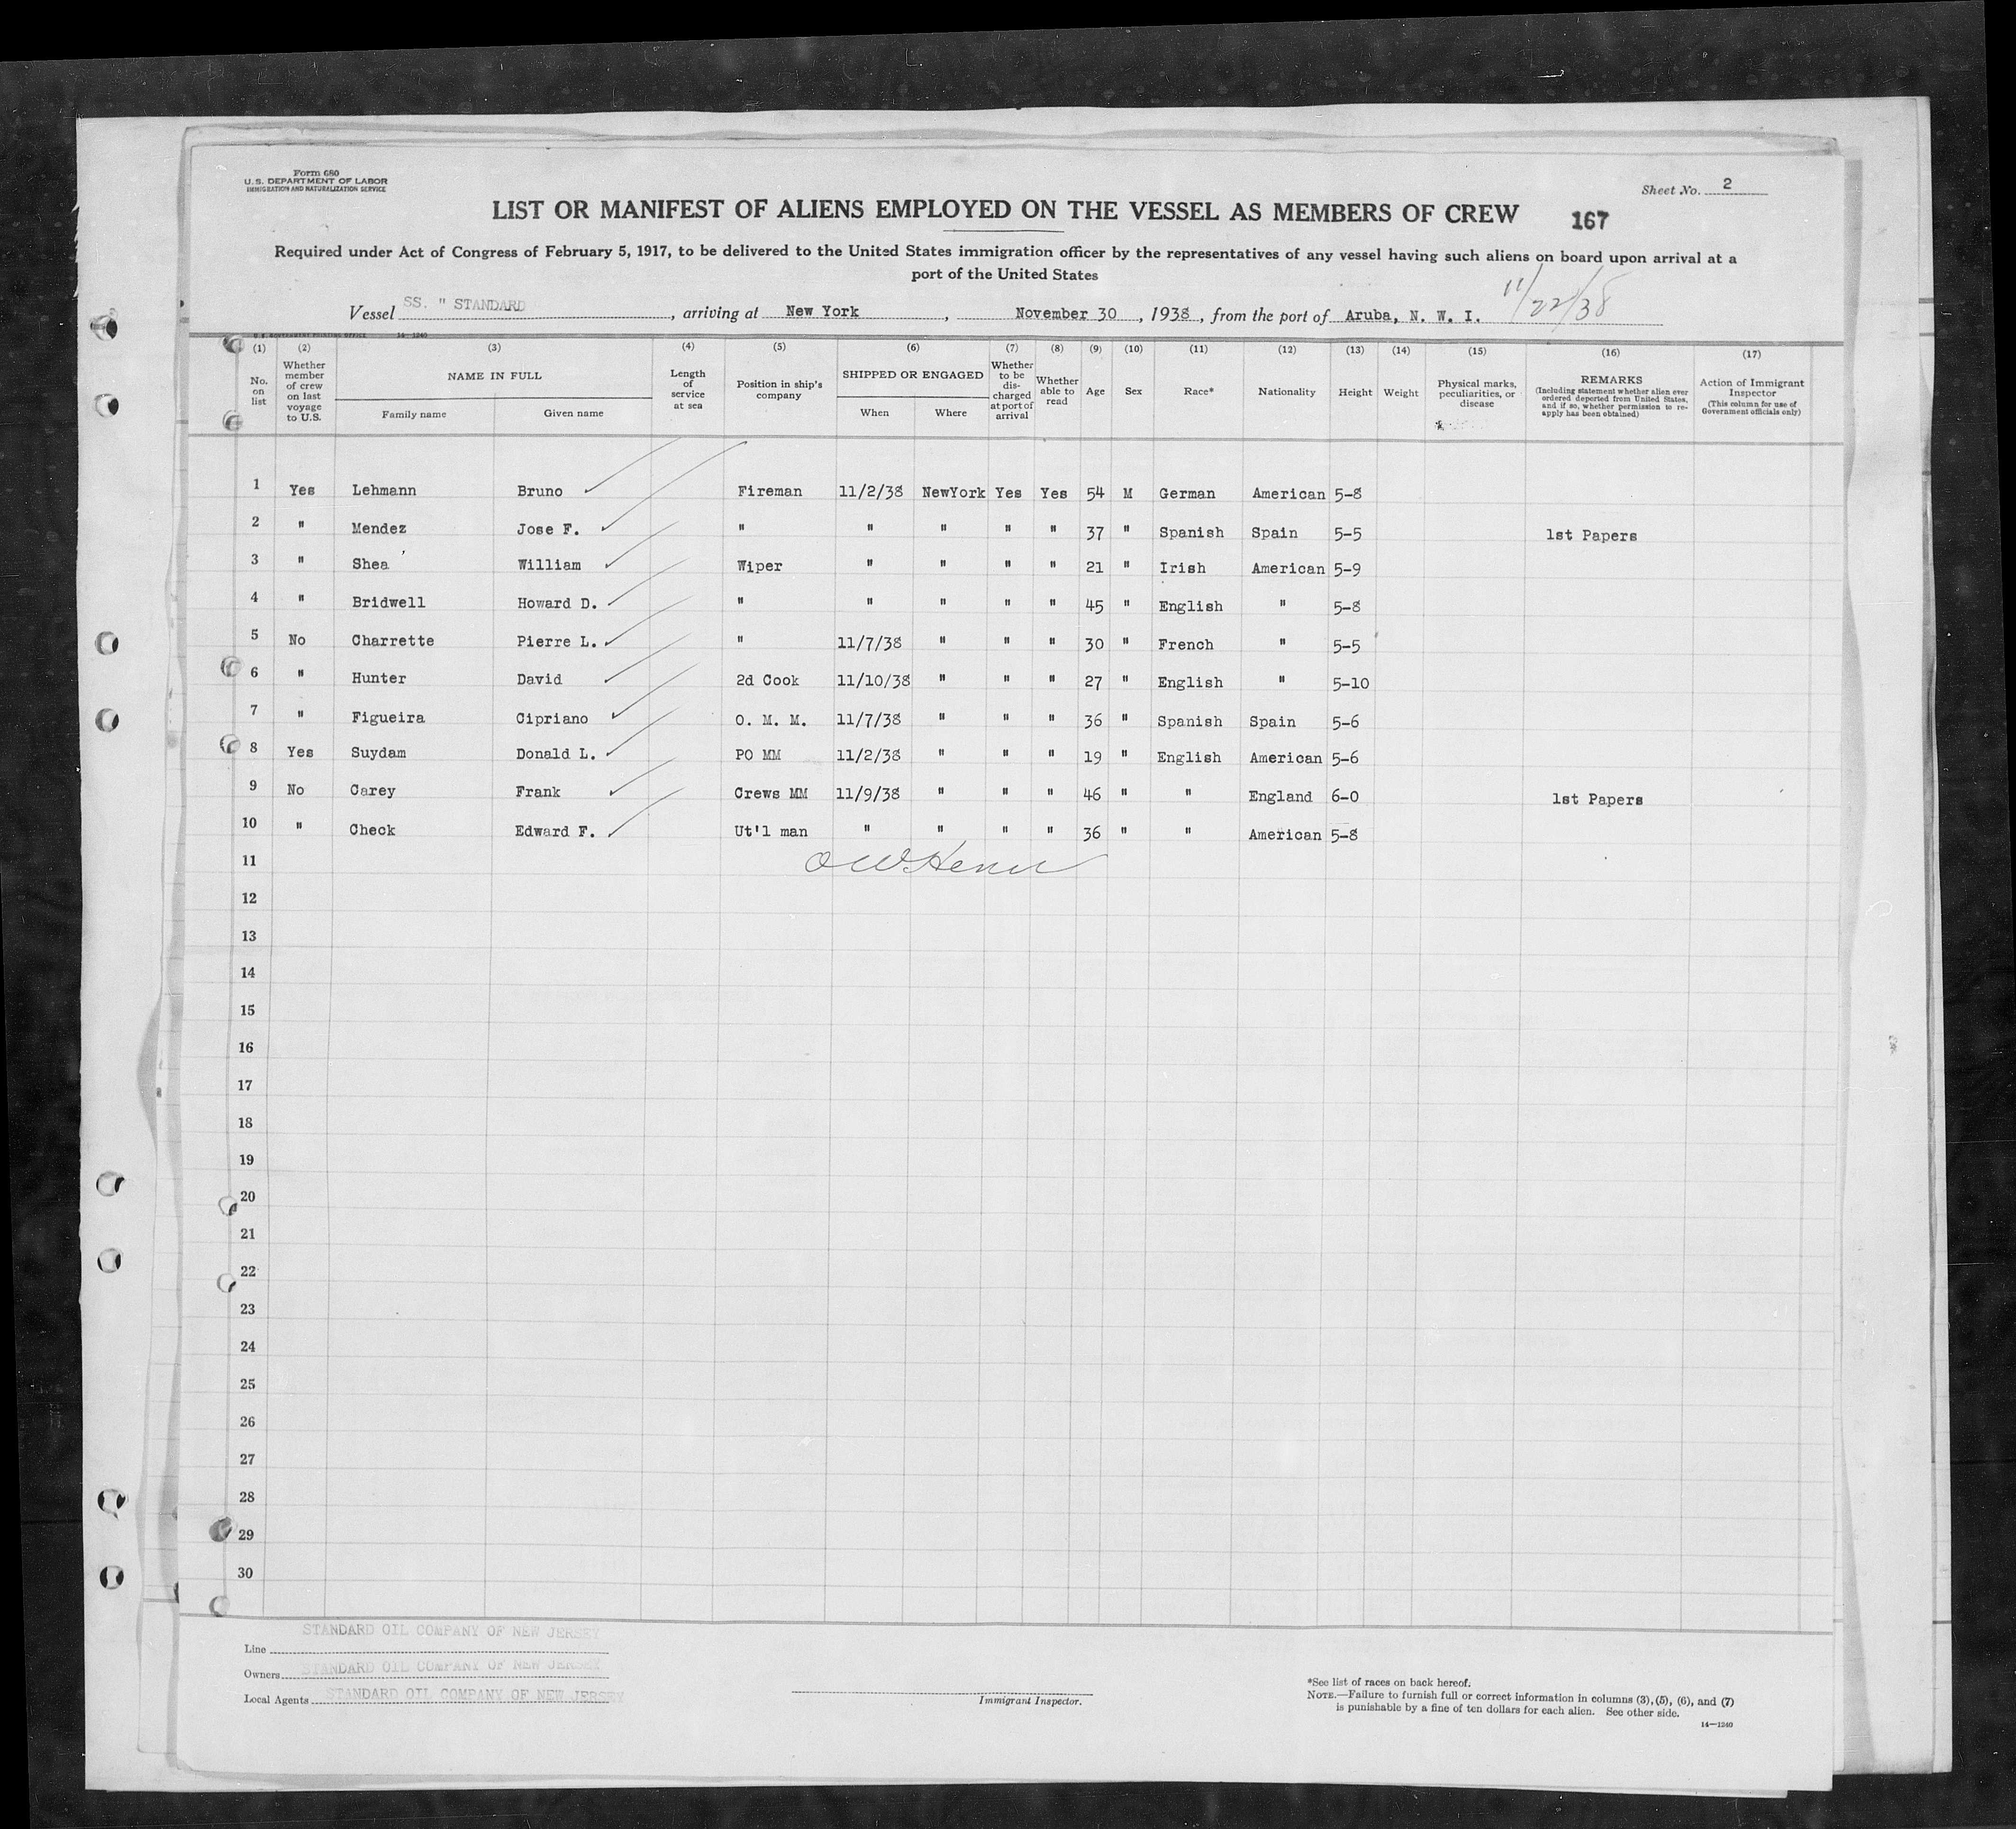 Form 680
U. S. DEPARTMENT OF LABOR
IMMIGRATION AND NATURALIZATION SERVICE
Sheet No. 2
LIST OR MANIFEST OF ALIENS EMPLOYED ON THE VESSEL AS MEMBERS OF CREW
167
Required under Act of Congress of February 5, 1917, to be delivered to the United States immigration officer by the representatives of any vessel having such aliens on board upon arrival at a
port of the United States
Vessel SS. " STANDARD , arriving at New York , November 30 , 1938 , from the port of Aruba, N. W. I. 11/22/38
U. S. GOVERNMENT PRINTING OFFICE 14—1240
(1) (2) (3) (4) (5) (6) (7) (8) (9) (10) (11) (12) (13) (14) (15) (16) (17)
No. on list
Whether member of crew on last voyage to U.S.
NAME IN FULL
Family name Given name
Length of service at sea
Position in ship's company
SHIPPED OR ENGAGED
When Where
Whether to be discharged at port of arrival
Whether able to read
Age
Sex
Race*
Nationality
Height
Weight
Physical marks, peculiarities, or disease
REMARKS
(Including statement whether alien ever ordered deported from United States, and if so, whether permission to re-apply has been obtained)
Action of Immigrant Inspector
(This column for use of Government officials only)
1 Yes Lehmann Bruno Fireman 11/2/38 NewYork Yes Yes 54 M German American 5-8
2 " Mendez Jose F. " " " " " 37 " Spanish Spain 5-5 1st Papers
3 " Shea William Wiper " " " " 21 " Irish American 5-9
4 " Bridwell Howard D. " " " " " 45 " English " 5-8
5 No Charrette Pierre L. " 11/7/38 " " " 30 " French " 5-5
6 " Hunter David 2d Cook 11/10/38 " " " 27 " English " 5-10
7 " Figueira Cipriano O. M. M. 11/7/38 " " " 36 " Spanish Spain 5-6
8 Yes Suydam Donald L. PO MM 11/2/38 " " " 19 " English American 5-6
9 No Carey Frank Crews MM 11/9/38 " " " 46 " " England 6-0 1st Papers
10 " Check Edward F. Ut'l man " " " " 36 " " American 5-8
11
12
13
14
15
16
17
18
19
20
21
22
23
24
25
26
27
28
29
30
Line STANDARD OIL COMPANY OF NEW JERSEY
Owners STANDARD OIL COMPANY OF NEW JERSEY
Local Agents STANDARD OIL COMPANY OF NEW JERSEY
Immigrant Inspector.
*See list of races on back hereof.
NOTE.—Failure to furnish full or correct information in columns (3), (5), (6), and (7)
is punishable by a fine of ten dollars for each alien. See other side.
14—1240